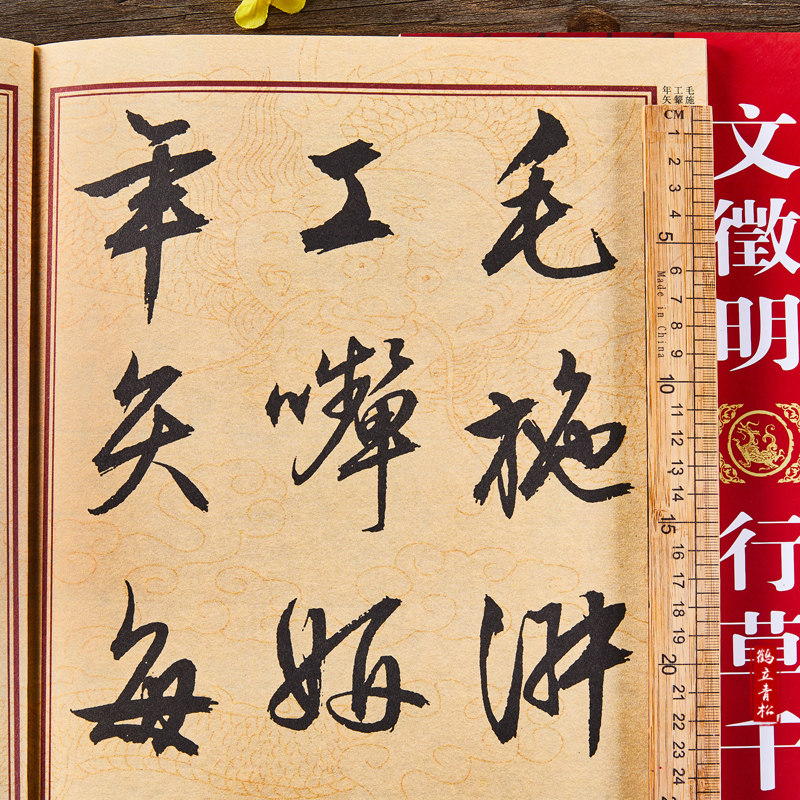 毛施淑
工嚬妍
年矢每
毛施
工顰
年矢
CM
1
2
3
4
5
6
7
8
9
10
11
12
13
14
15
16
17
18
19
20
21
22
23
24
Made in China
文徵明
行草千
鹤立青松